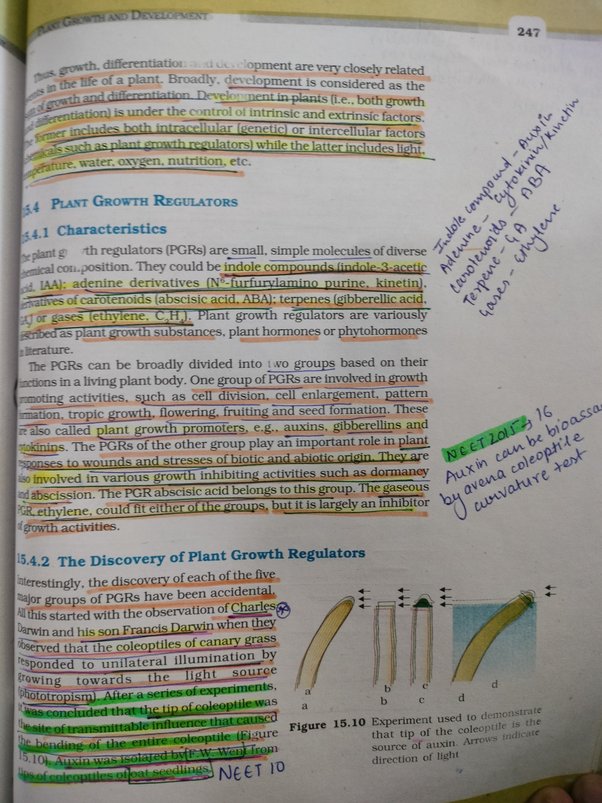 PLANT GROWTH AND DEVELOPMENT
247
Thus, growth, differentiation and development are very closely related
in the life of a plant. Broadly, development is considered as the
of growth and differentiation. Development in plants (i.e., both growth
differentiation) is under the control of intrinsic and extrinsic factors.
former includes both intracellular (genetic) or intercellular factors
such as plant growth regulators) while the latter includes light,
temperature, water, oxygen, nutrition, etc.
15.4 PLANT GROWTH REGULATORS
15.4.1 Characteristics
The plant g th regulators (PGRs) are small, simple molecules of diverse
chemical composition. They could be indole compounds (indole-3-acetic
acid, IAA); adenine derivatives (N6-furfurylamino purine, kinetin),
derivatives of carotenoids (abscisic acid, ABA); terpenes (gibberellic acid,
or gases (ethylene, C2H4). Plant growth regulators are variously
described as plant growth substances, plant hormones or phytohormones
in literature.
The PGRs can be broadly divided into two groups based on their
functions in a living plant body. One group of PGRs are involved in growth
promoting activities, such as cell division, cell enlargement, pattern
formation, tropic growth, flowering, fruiting and seed formation. These
are also called plant growth promoters, e.g., auxins, gibberellins and
cytokinins. The PGRs of the other group play an important role in plant
responses to wounds and stresses of biotic and abiotic origin. They are
also involved in various growth inhibiting activities such as dormancy
and abscission. The PGR abscisic acid belongs to this group. The gaseous
PGR, ethylene, could fit either of the groups, but it is largely an inhibitor
of growth activities.
Indole compound - Auxin
Adenine - Cytokinin/Kinetin
Carotenoids - ABA
Terpene - GA
Gases - Ethylene
NEET 2015 → 16
Auxin can be bioassa
by avena coleoptile
curvature test
15.4.2 The Discovery of Plant Growth Regulators
Interestingly, the discovery of each of the five
major groups of PGRs have been accidental.
All this started with the observation of Charles
Darwin and his son Francis Darwin when they
observed that the coleoptiles of canary grass
responded to unilateral illumination by
growing towards the light source
(phototropism). After a series of experiments,
it was concluded that the tip of coleoptile was
the site of transmittable influence that caused
the bending of the entire coleoptile (Figure
15.10). Auxin was isolated by F.W. Went from
tips of coleoptiles of oat seedlings.
NEET 10
a b c d
a b c d
Figure 15.10 Experiment used to demonstrate
that tip of the coleoptile is the
source of auxin. Arrows indicate
direction of light